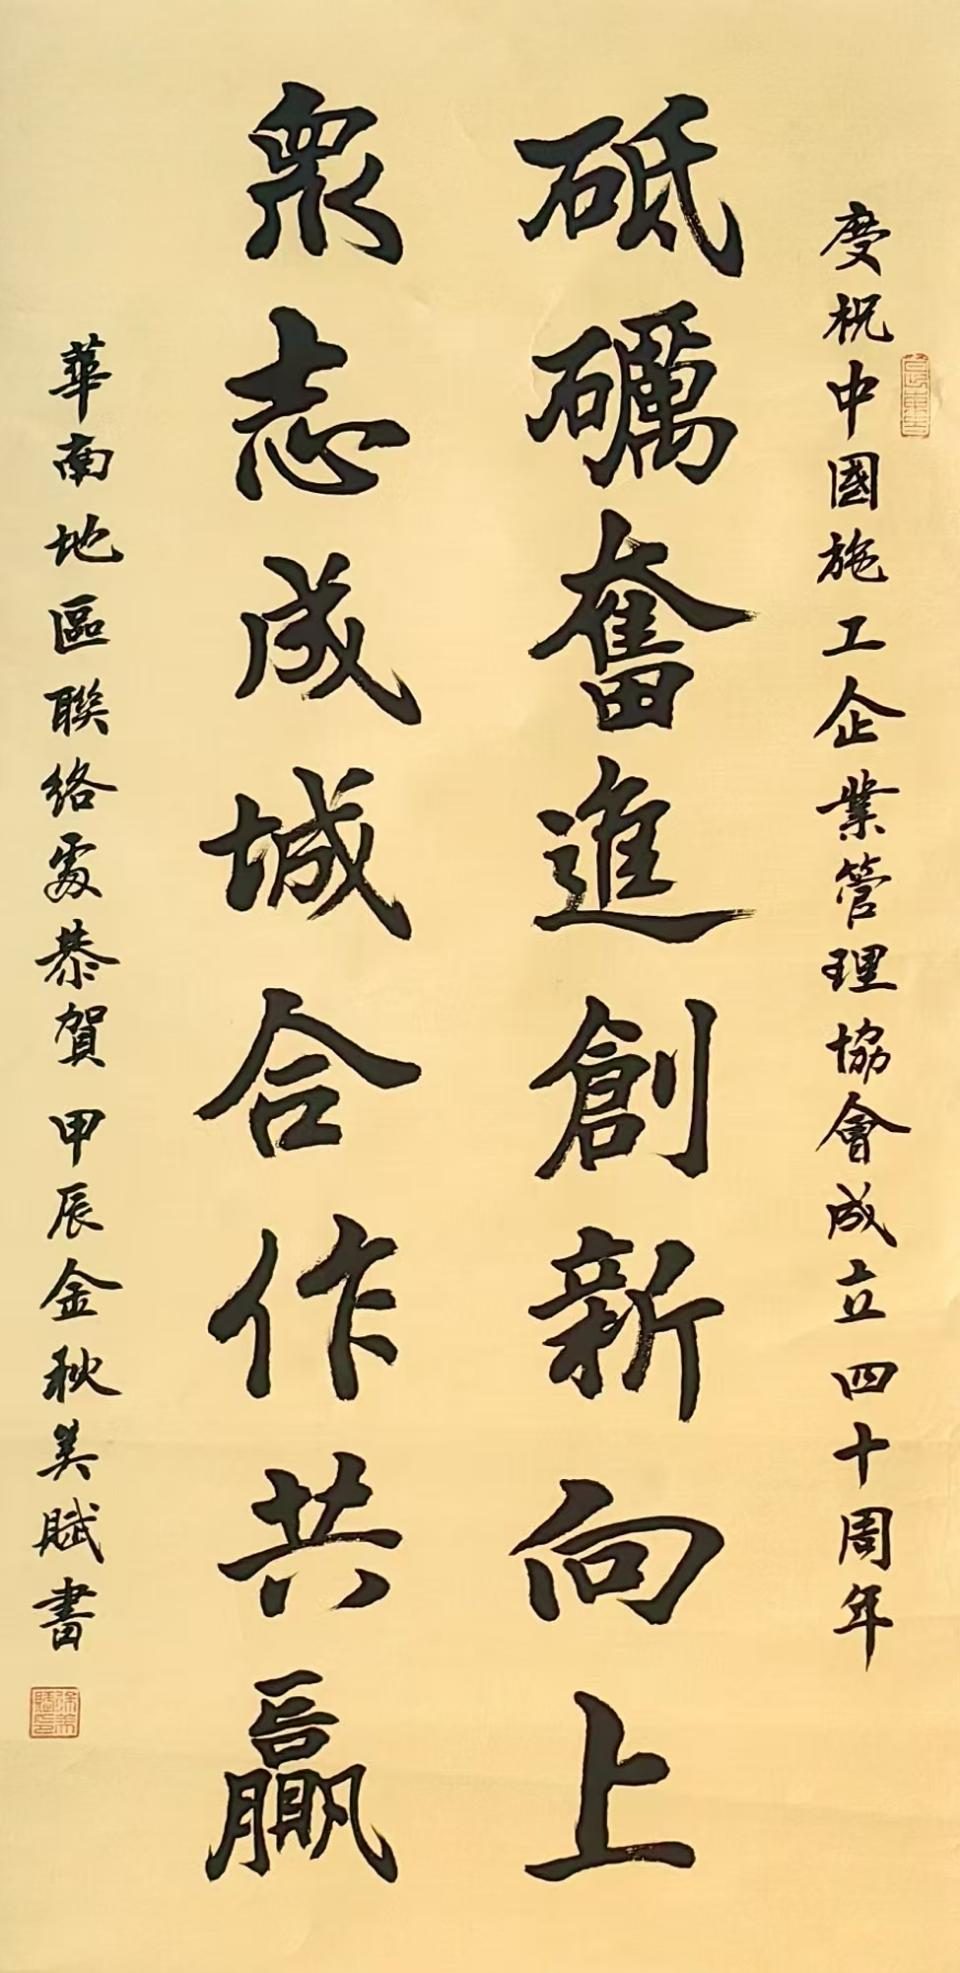 慶祝中國施工企業管理協會成立四十周年
砥礪奮進創新向上
衆志成城合作共贏
華南地區聯絡處恭賀 甲辰金秋美賦書